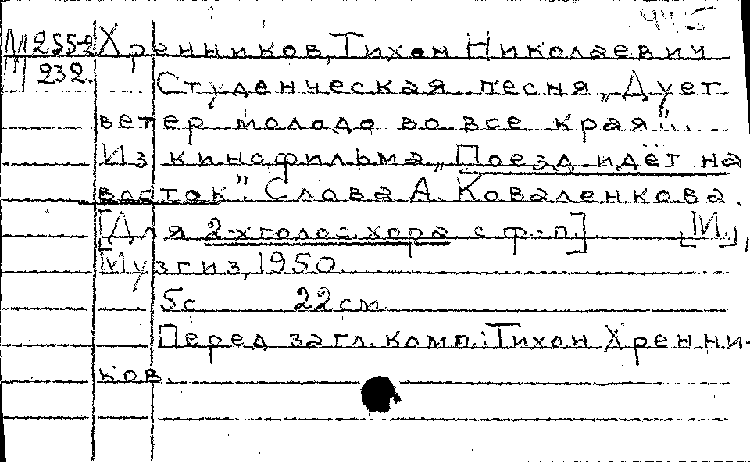 445
М 255-2 Хренников, Тихон Николаевич
232. Студенческая песня „Дует
ветер молодо во все края".
Из кинофильма „Поезд идёт на
восток". Слова А. Коваленкова.
[Для 2-хголос. хора с ф.-п.] [М.],
Музгиз, 1950.
5с 22 см.
Перед загл. комп.: Тихон Хренни-
ков.